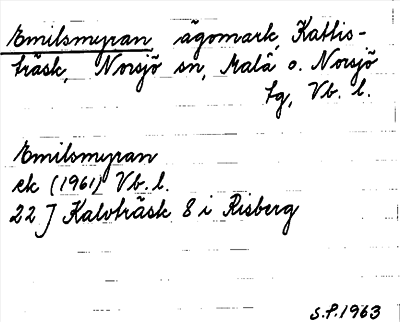 Emilsmyran, ägomark, Kattis-
träsk, Norsjö sn, Malå o. Norsjö
tg, Vb. l.
Emilsmyran
ek (1961) Vb. l.
22 J Kalvträsk 8 i Risberg
S.P. 1963